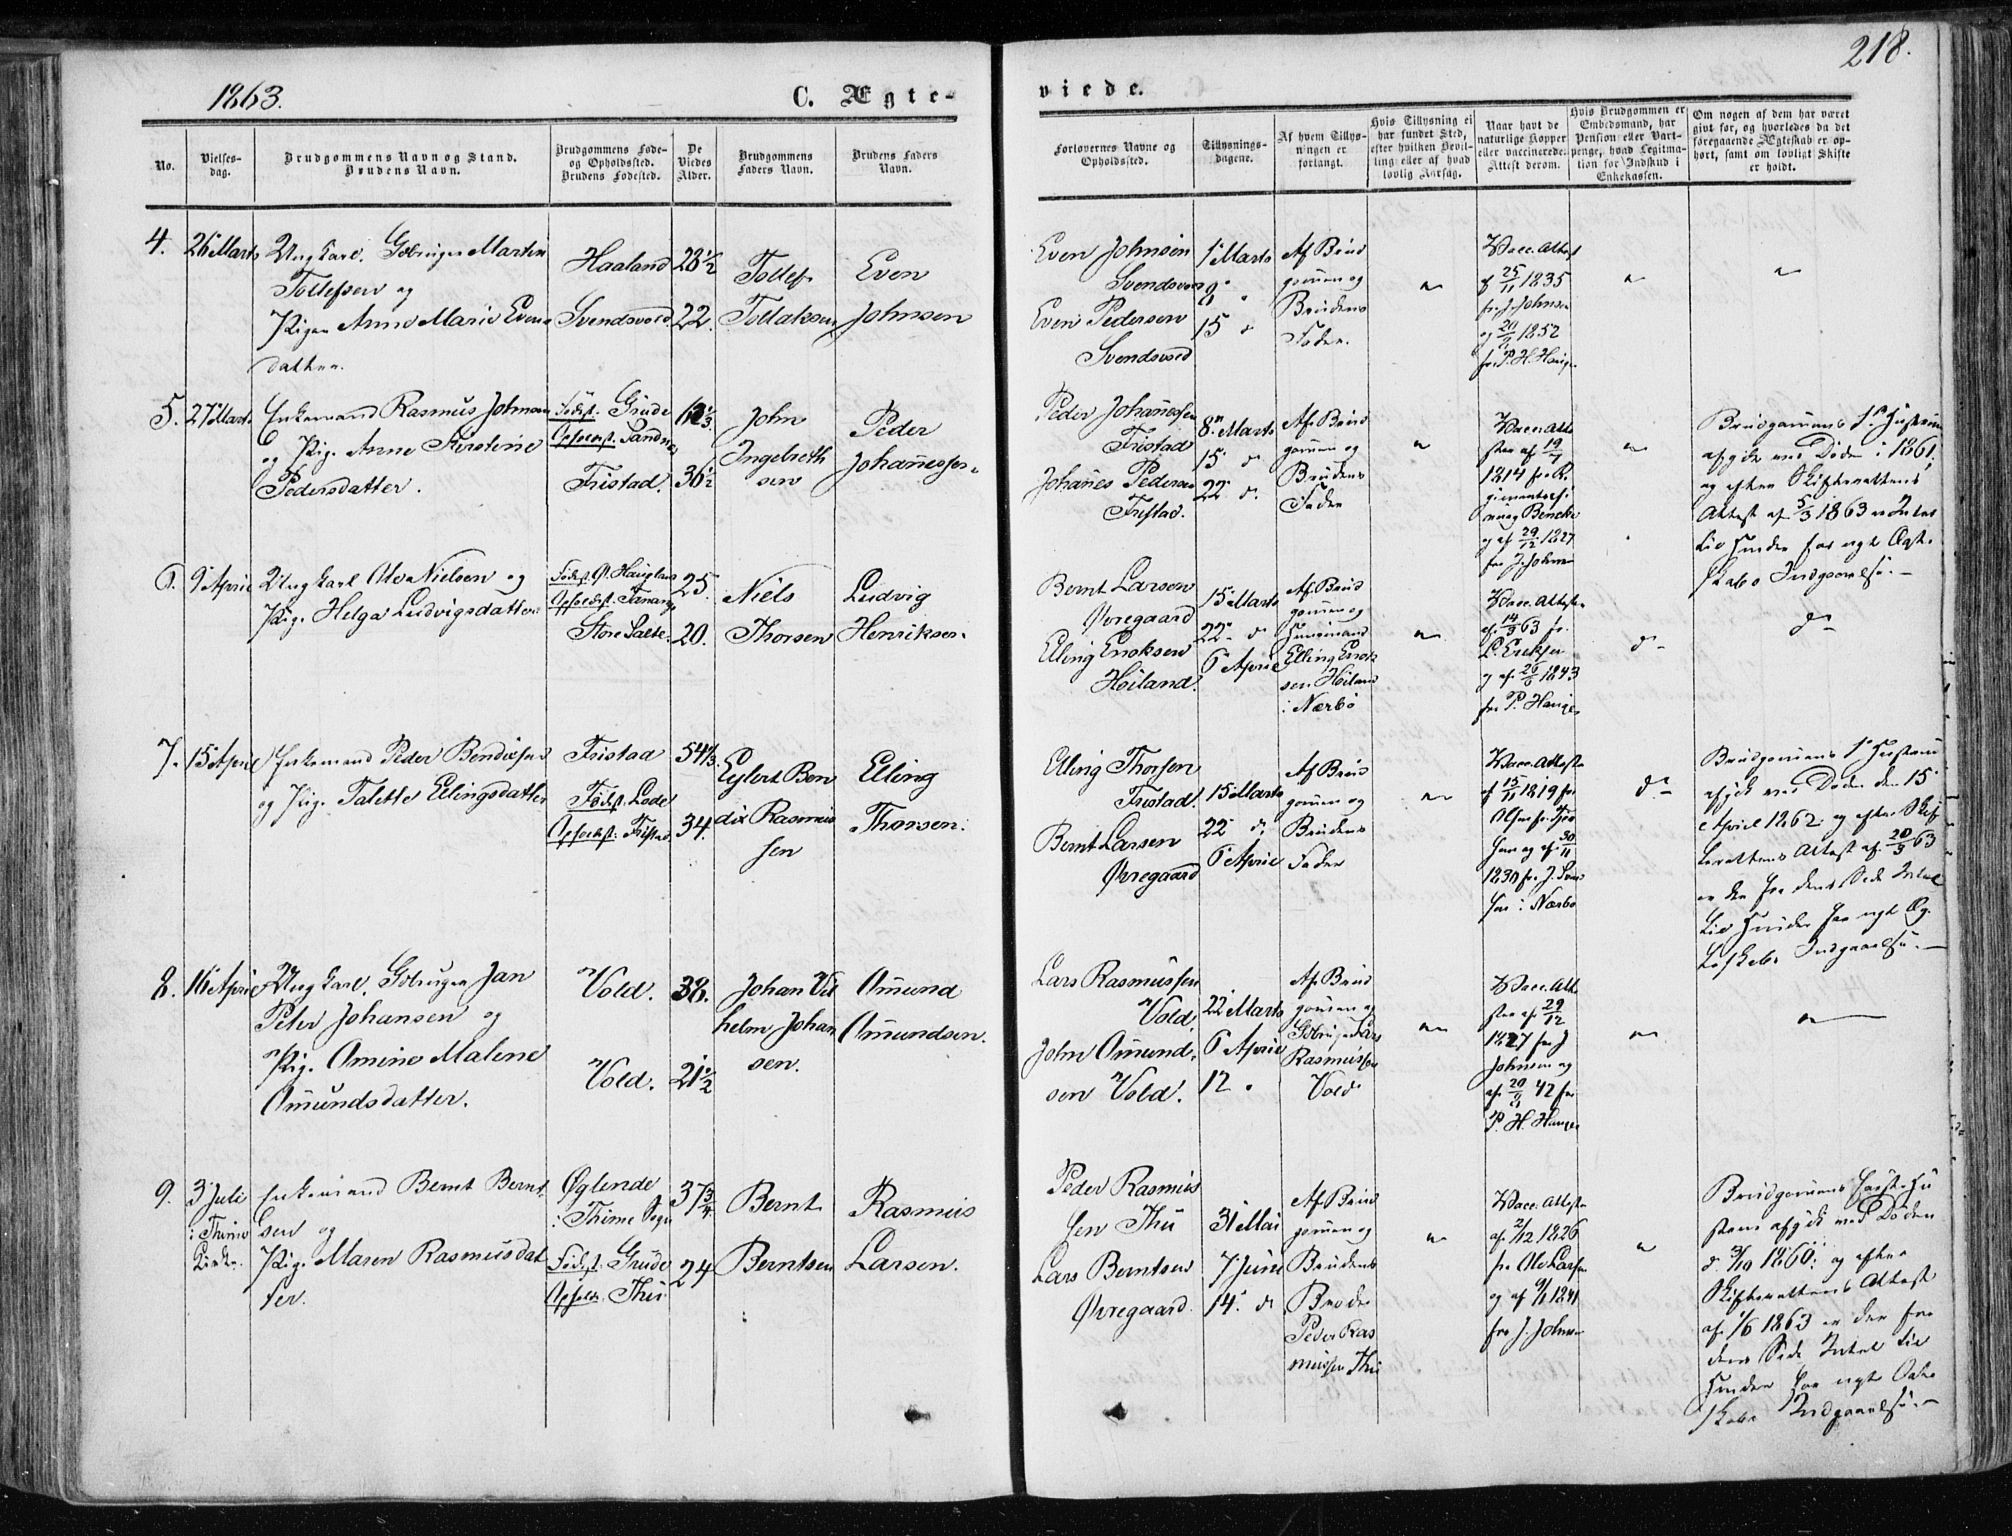 218.
1863.
C. Ægte-
viede.
No.
Vielses-
dag.
Brudgommens Navn og Stand.
Brudens Navn.
Brudgommens Føde-
og Opholdssted.
Brudens Fødested.
De
Viedes
Alder.
Brudgommens
Faders Navn.
Brudens Faders
Navn.
Forlovernes Navne og
Opholdssted.
Tillysnings-
dagene.
Af hvem Tillys-
ningen er
forlangt.
Hvis Tillysning ei
har fundet Sted,
efter hvilken Bevil-
ling eller af hvad
lovlig Aarsag.
Naar havt de
naturlige Kopper
eller vaccinerede.
Attest derom.
Hvis Brudgommen er
Embedsmand, har
Pension eller Vart-
penge, hvad Legitima-
tion for Indskud i
Enkekassen.
Om nogen af dem har været
givt før, og hvorledes da det
foregaaende Ægteskab er op-
hørt, samt om lovligt Skifte
er holdt.
4.
26 Marts
Ungkarl, Gbruger Martin
Tollefsen og
Pige Anne Marie Evens-
datter.
Haaland
Svendsvoed
28 1/2
22.
Tollef
Tollaksen
Even
Johnsen
Even Johnsen
Svendsvoed
Even Pedersen
Svendsvoed
1 Marts
8 "
15 d
Af Brud
gomen og
Brudens
Fader.
Vacc. Attest
af 25/11 1835
fra J. Johnsen
og 20/9 1852
fra P. H. Hauge
5.
27 Marts
Enkemand Rasmus Johnsen
og Pig. Anne Kirstine
Pedersdatter.
Fødest. Grude
Opholdst. Sandnes
Fristad.
36 1/2
John
Ingebreth
sen
Peder
Johannessen
Peder Johannessen
Fristad
Johanes Pedersen
Fristad.
8 Marts
15 d
22 d.
Af Brud
gomen og
Brudens
Fader
Vacc. Atte
ster af 19/7
1814 fra R.
giments
Bencke
og af 29/12 1827
fra J. Johnsen
Brudgomens 1e Hustru
afgik ved Døden i 1861,
og efter Skifterettens
Attest af 5/3 1863 er Intet
til Hinder for nyt Ægte-
skabs Indgaaelse.
6.
9 April
Ungkarl Ole Nielsen og
Pig. Helga Ludvigsdatter
Fødest. Ø. Haugland
Opholdst. Tanange
Store Salte.
25.
20.
Niels
Thorsen
Ludvig
Henriksen
Bernt Larsen
Øvregaard
Elling Enoksen
Høiland.
15 Marts
22 d
6 April
Af Brud
gomen og
Huusmand
Elling Enok
sen Høiland
i Nærbø
Vacc. Attester
af 14/3 63 fra
L. Eriksen
og af 26/6 1843
fra P. Hauge
d
d
7.
15 April
Enkemand Peder Bendixsen
og Pig. Talette Ellingsdatter
Fristad
Fødest. Lode
Opholdst. Fristad
54 1/3
34.
Eylert Ben
dix Rasmus
sen
Elling
Thorsen.
Elling Thorsen
Fristad.
Bernt Larsen
Øvregaard
15 Marts
22 d
6 April
Af Brud
gomen og
Brudens
Fader
Vacc. Attester
af 15/11 1819 fra
og af 30/11
1830 fra J.
i Nærbø
d
Brudgomens 1e Hustru
afgik ved Døden den 15
April 1862 og efter Skif
terettens Attest af 20/3 63
er der fra dens Side Intet
til Hinder for nyt Æg-
teskabs Indgaaelse.
8.
16 April
Ungkarl, Gbruger Jan
Peter Johansen og
Pig. Omine Malene
Omundsdatter.
Vold.
Vold.
38.
21 1/2
Johan Vil
helm Johan
sen.
Omund
Omundsen.
Lars Rasmussen
Vold.
John Omund-
sen Vold.
22 Marts
6 April
12 "
Af Brud
gomen og
Gbruger Lars
Rasmussen
Vold
Vacc. Atte
ster af 29/12
1827 fra J
Johnsen og
af 20/9 42 fra
P. H. Hauge
9.
3 Juli
i Thime
Kirke.
Enkemand Bernt Bernt-
sen og
Pig. Maren Rasmusdat
ter.
Øglende
i Thime Sogn
Fødest. Grude
Opholdst. Thu
37 3/4
24
Bernt
Berntsen
Rasmus
Larsen.
Peder Rasmus
sen Thu
Lars Berntsen
Øvregaard.
31 Mai
7 Juni
14 d
Af Brud
gomen og
Brudens
Broder
Peder Ras
mussen Thu
Vacc. Attester
af 2/12 1826
fra Ole Larsen
og af 9/11 1841
fra J. Johnsen
Brudgomens første Hu
stru afgik ved Døden
d 3/10 1860; og efter
Skifterettens Attest
af 1/6 1863 er der fra
dens Side Intet til
Hinder for nyt Ægte
skabs Indgaaelse.